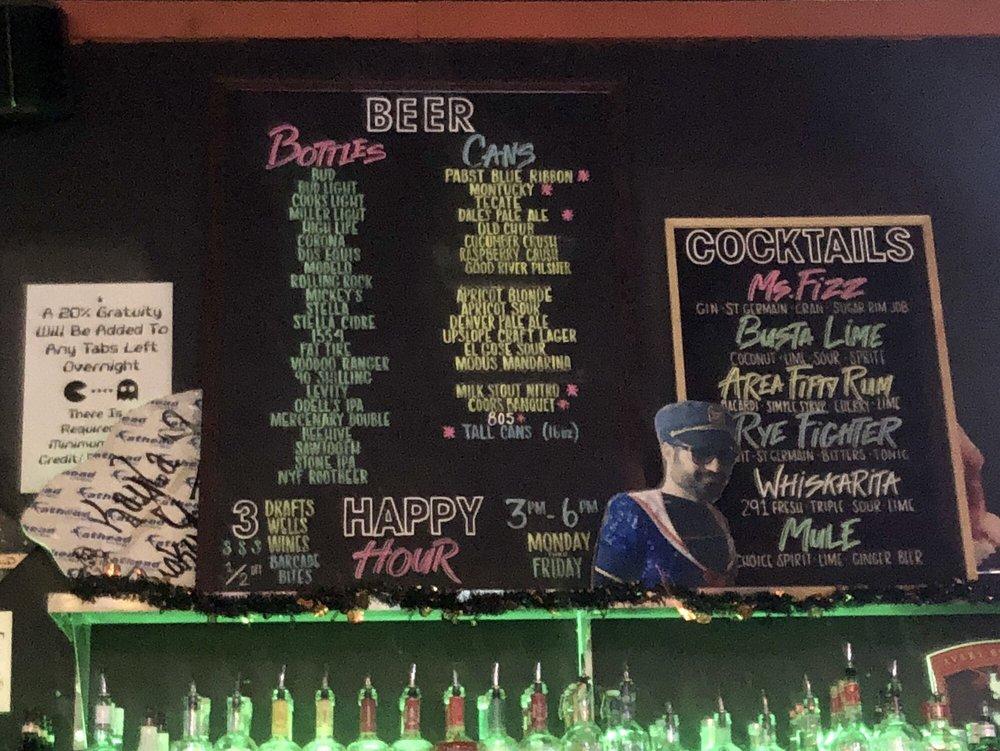 BEER
BOTTLES
BUD
BUD LIGHT
COORS LIGHT
MILLER LIGHT
HIGH LIFE
CORONA
DOS EQUIS
MODELO
ROLLING ROCK
MICKEY'S
STELLA
STELLA CIDRE
1554
FAT TIRE
VOODOO RANGER
90 SHILLING
LEVITY
ODELL'S IPA
MERCENARY DOUBLE
BEEHIVE
SAWTOOTH
STONE IPA
NYF ROOTBEER
CANS
PABST BLUE RIBBON *
MONTUCKY *
TECATE
DALES PALE ALE *
OLD CHUB
CUCUMBER CRUSH
RASPBERRY CRUSH
GOOD RIVER PILSNER
APRICOT BLONDE
APRICOT SOUR
DENVER PALE ALE
UPSLOPE CRAFT LAGER
EL GOSE SOUR
MODUS MANDARINA
MILK STOUT NITRO *
COORS BANQUET *
805 *
* TALL CANS (16oz)
3
$$$
1/2 OFF
DRAFTS
WELLS
WINES
BARCADE
BITES
HAPPY
HOUR
3PM-6PM
MONDAY
THRU
FRIDAY
COCKTAILS
Ms. Fizz
GIN · ST GERMAIN · CRAN · SUGAR RIM JOB
BUSTA LIME
COCONUT · LIME SOUR · SPRITE
AREA FIFTY RUM
BACARDI · SIMPLE SYRUP · CHERRY · LIME
RYE FIGHTER
ST GERMAIN · BITTERS · TONIC
WHISKARITA
291 FRESH TRIPLE SOUR LIME
MULE
CHOICE SPIRIT · LIME · GINGER BEER
*
A 20% Gratuity
Will Be Added To
Any Tabs Left
Overnight
There Is
Minimum
Credit/
Fathead
Kayla
AVERY